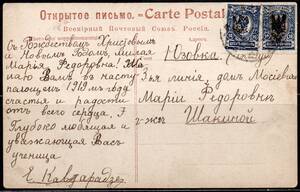 Открытое письмо. — Carte Postale
Всемірный Почтовый Союз. Россія.
Съ Рождествомъ Христовымъ
и Новымъ Годомъ, милая
Марія Федоровна!
Вамъ въ насту-
пающемъ 1919 мъ году
счастья и радости
отъ всего сердца.
Глубоко любящая и
уважающая Васъ
ученица
Е. Кавдарадзе
Юзовка.
3ья линія, домъ
Маріи Федоровнѣ
г-жѣ Шапкиной